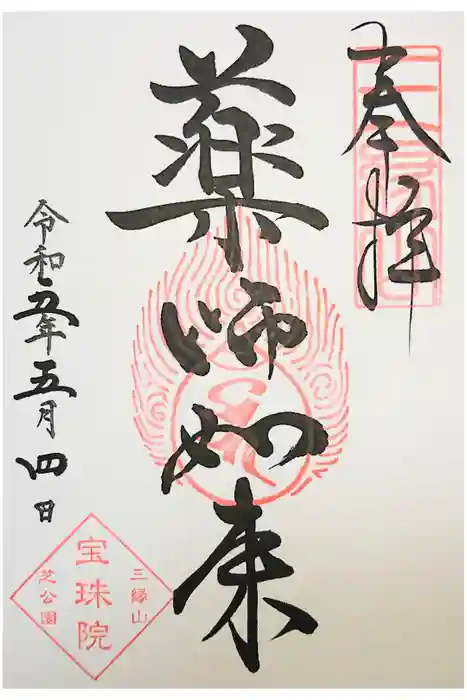 奉拝
薬師如来
令和五年五月四日
三縁山
宝珠院
芝公園